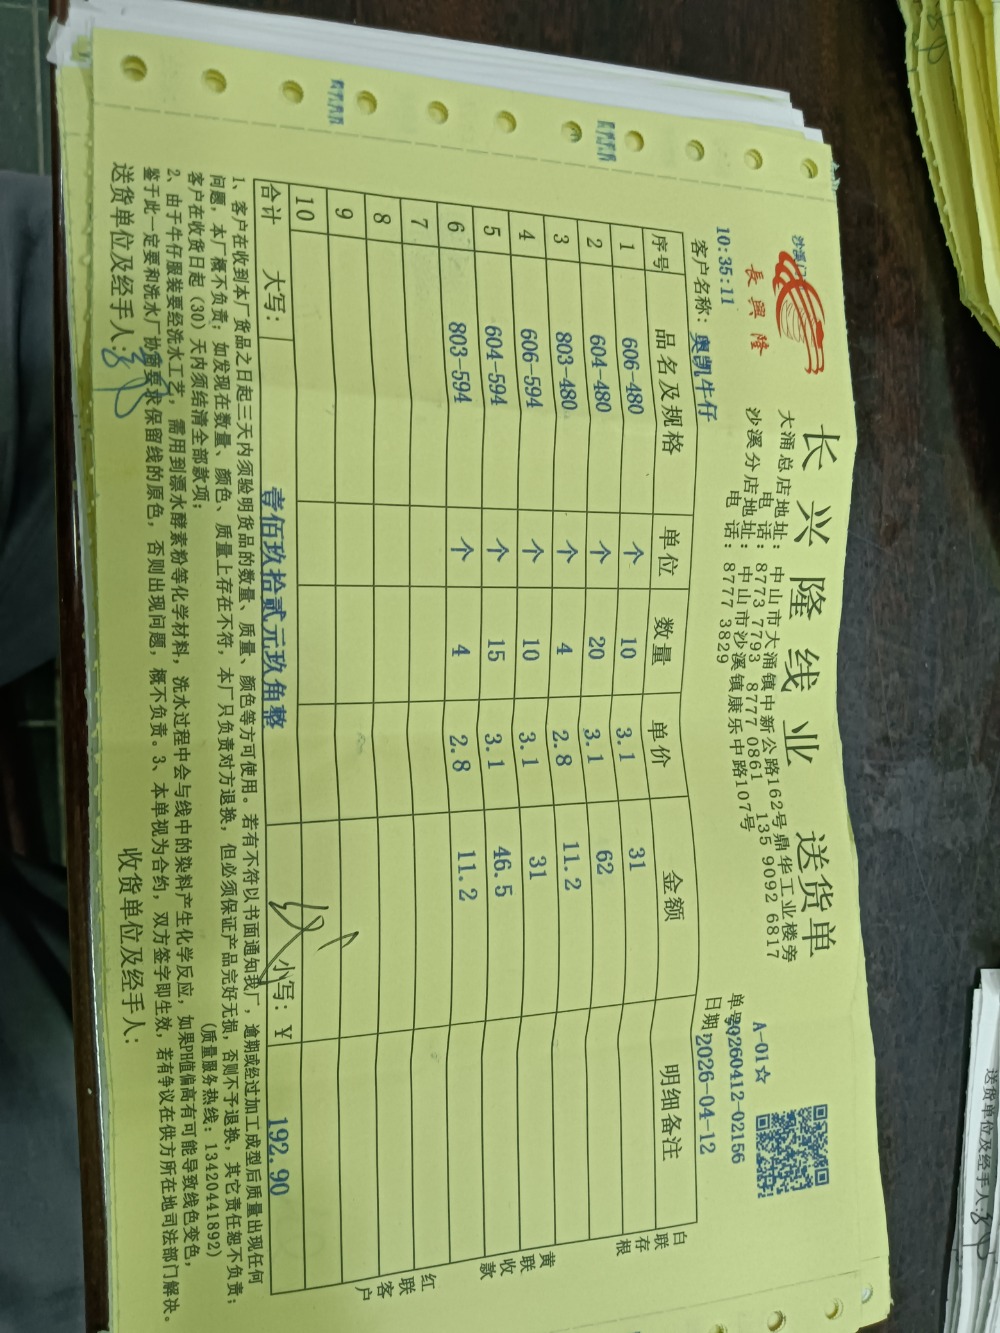 長興隆
长兴隆线业 送货单
大涌总店地址：中山市大涌镇中新公路162号鼎华工业楼旁
电话：8773 7793 8777 0861 135 9092 6817
沙溪分店地址：中山市沙溪镇康乐中路107号
电话：8777 3829
A-01☆
单号20260412-02156
日期2026-04-12
10:35:11
客户名称：奥凯牛仔
序号 品名及规格 单位 数量 单价 金额 明细备注
1 606-480 个 10 3.1 31
2 604-480 个 20 3.1 62
3 803-480 个 4 2.8 11.2
4 606-594 个 10 3.1 31
5 604-594 个 15 3.1 46.5
6 803-594 个 4 2.8 11.2
7
8
9
10
合计 大写：壹佰玖拾贰元玖角整 小写：¥ 192.90
白联存根
黄联收款
红联客户
1、客户在收到本厂货品之日起三天内须验明货品的数量、质量、颜色等方可使用。若有不符以书面通知我厂，逾期或经过加工成型后质量出现任何
问题，本厂概不负责；如发现在数量、颜色、质量上存在不符，本厂只负责对方退换，但必须保证产品完好无损，否则不予退换，其它责任恕不负责；
客户在收货日起（30）天内须结清全部款项； (质量服务热线：13420441892)
2、由于牛仔服装要经洗水工艺，需用到漂水酵素粉等化学材料，洗水过程中会与线中的染料产生化学反应，如果PH值偏高有可能导致线色变色，
鉴于此一定要和洗水厂协商要求保留线的原色，否则出现问题，概不负责。3、本单视为合约，双方签字即生效，若有争议在供方所在地司法部门解决。
送货单位及经手人： 收货单位及经手人：
送货单位及经手人：